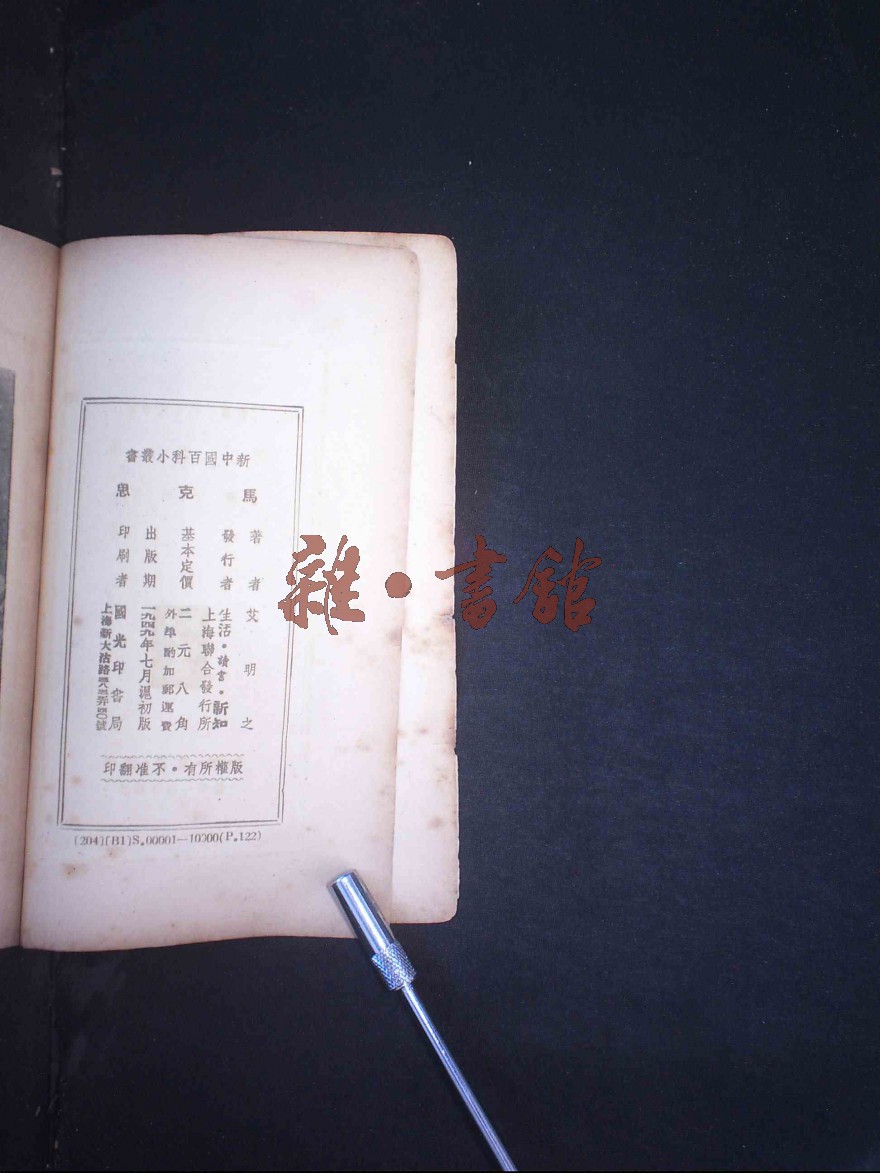 新中國百科小叢書
馬克思
著者 艾明之
發行者 生活·讀書·新知
上海聯合發行所
基本定價 二元八角
外埠酌加郵運費
出版期 一九四九年七月滬初版
印刷者 國光印書局
上海新大沽路
版權所有·不准翻印
(204)[B1]S.00001—10000(P.122)
雜·書館